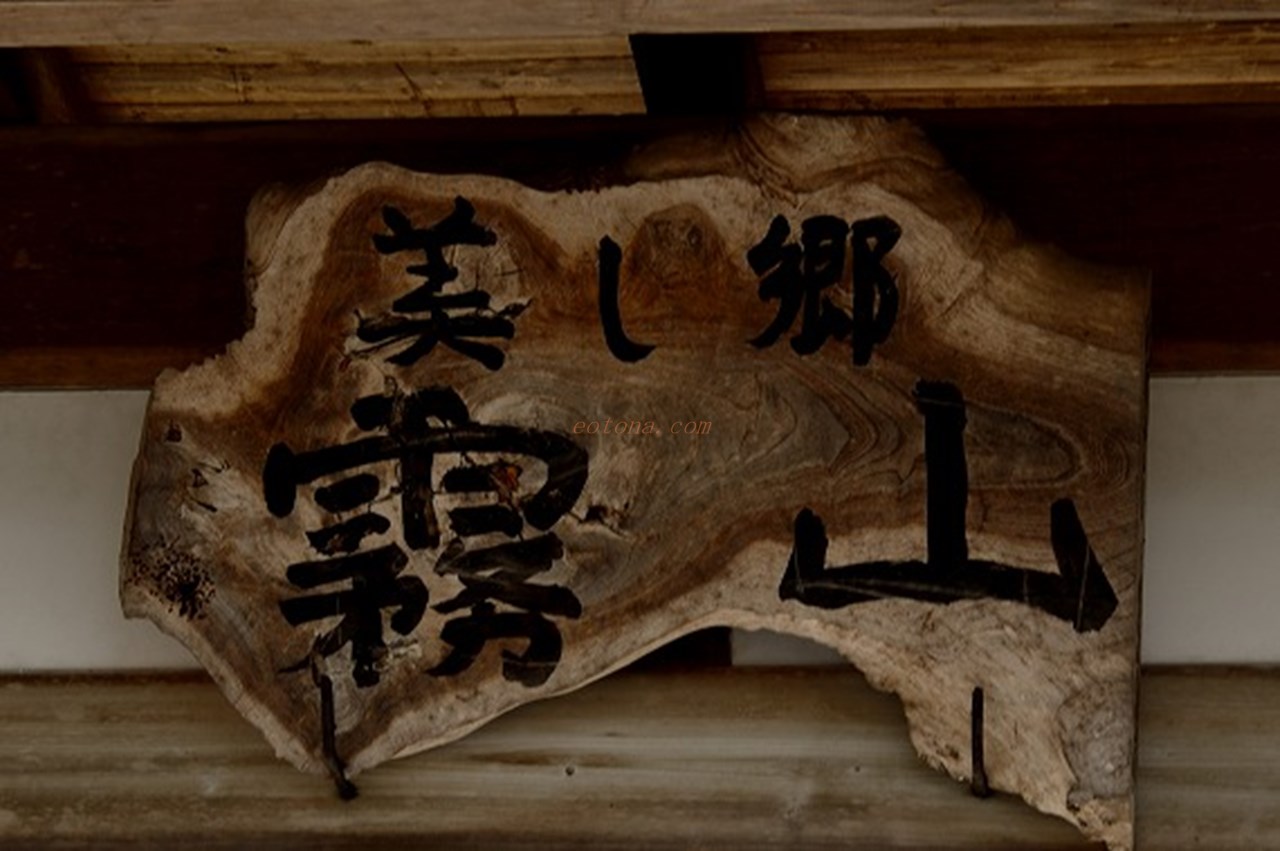 美し郷
霧山
eotona.com